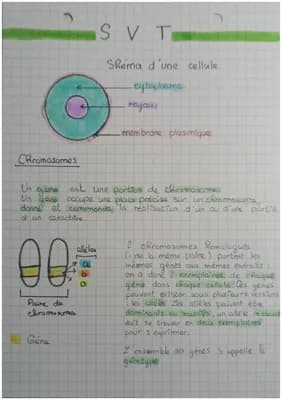 SVT
Shema d'une cellule.
cytoplasme
noyau
membrane plasmique
Chromosomes
Un gène est une portion de chromosome.
Un gène occupe une place précise sur un chromosome
donné et commande la réalisation d'un ou d'une partie
d'un caractère.
allèles
a
b
o
Paire de
chromosomes
Gène
2 chromosomes homologues
(de la même paire) portent les
mêmes gènes aux mêmes endroits :
on a donc 2 exemplaires de chaque
gène dans chaque cellule. Ces gènes
peuvent exister sous plusieurs versions
: les allèles. Les allèles peuvent être
dominants ou récessifs, un allèle récessif
doit se trouver en deux exemplaires
pour s'exprimer.
L'ensemble des gènes s'appelle le
génotype